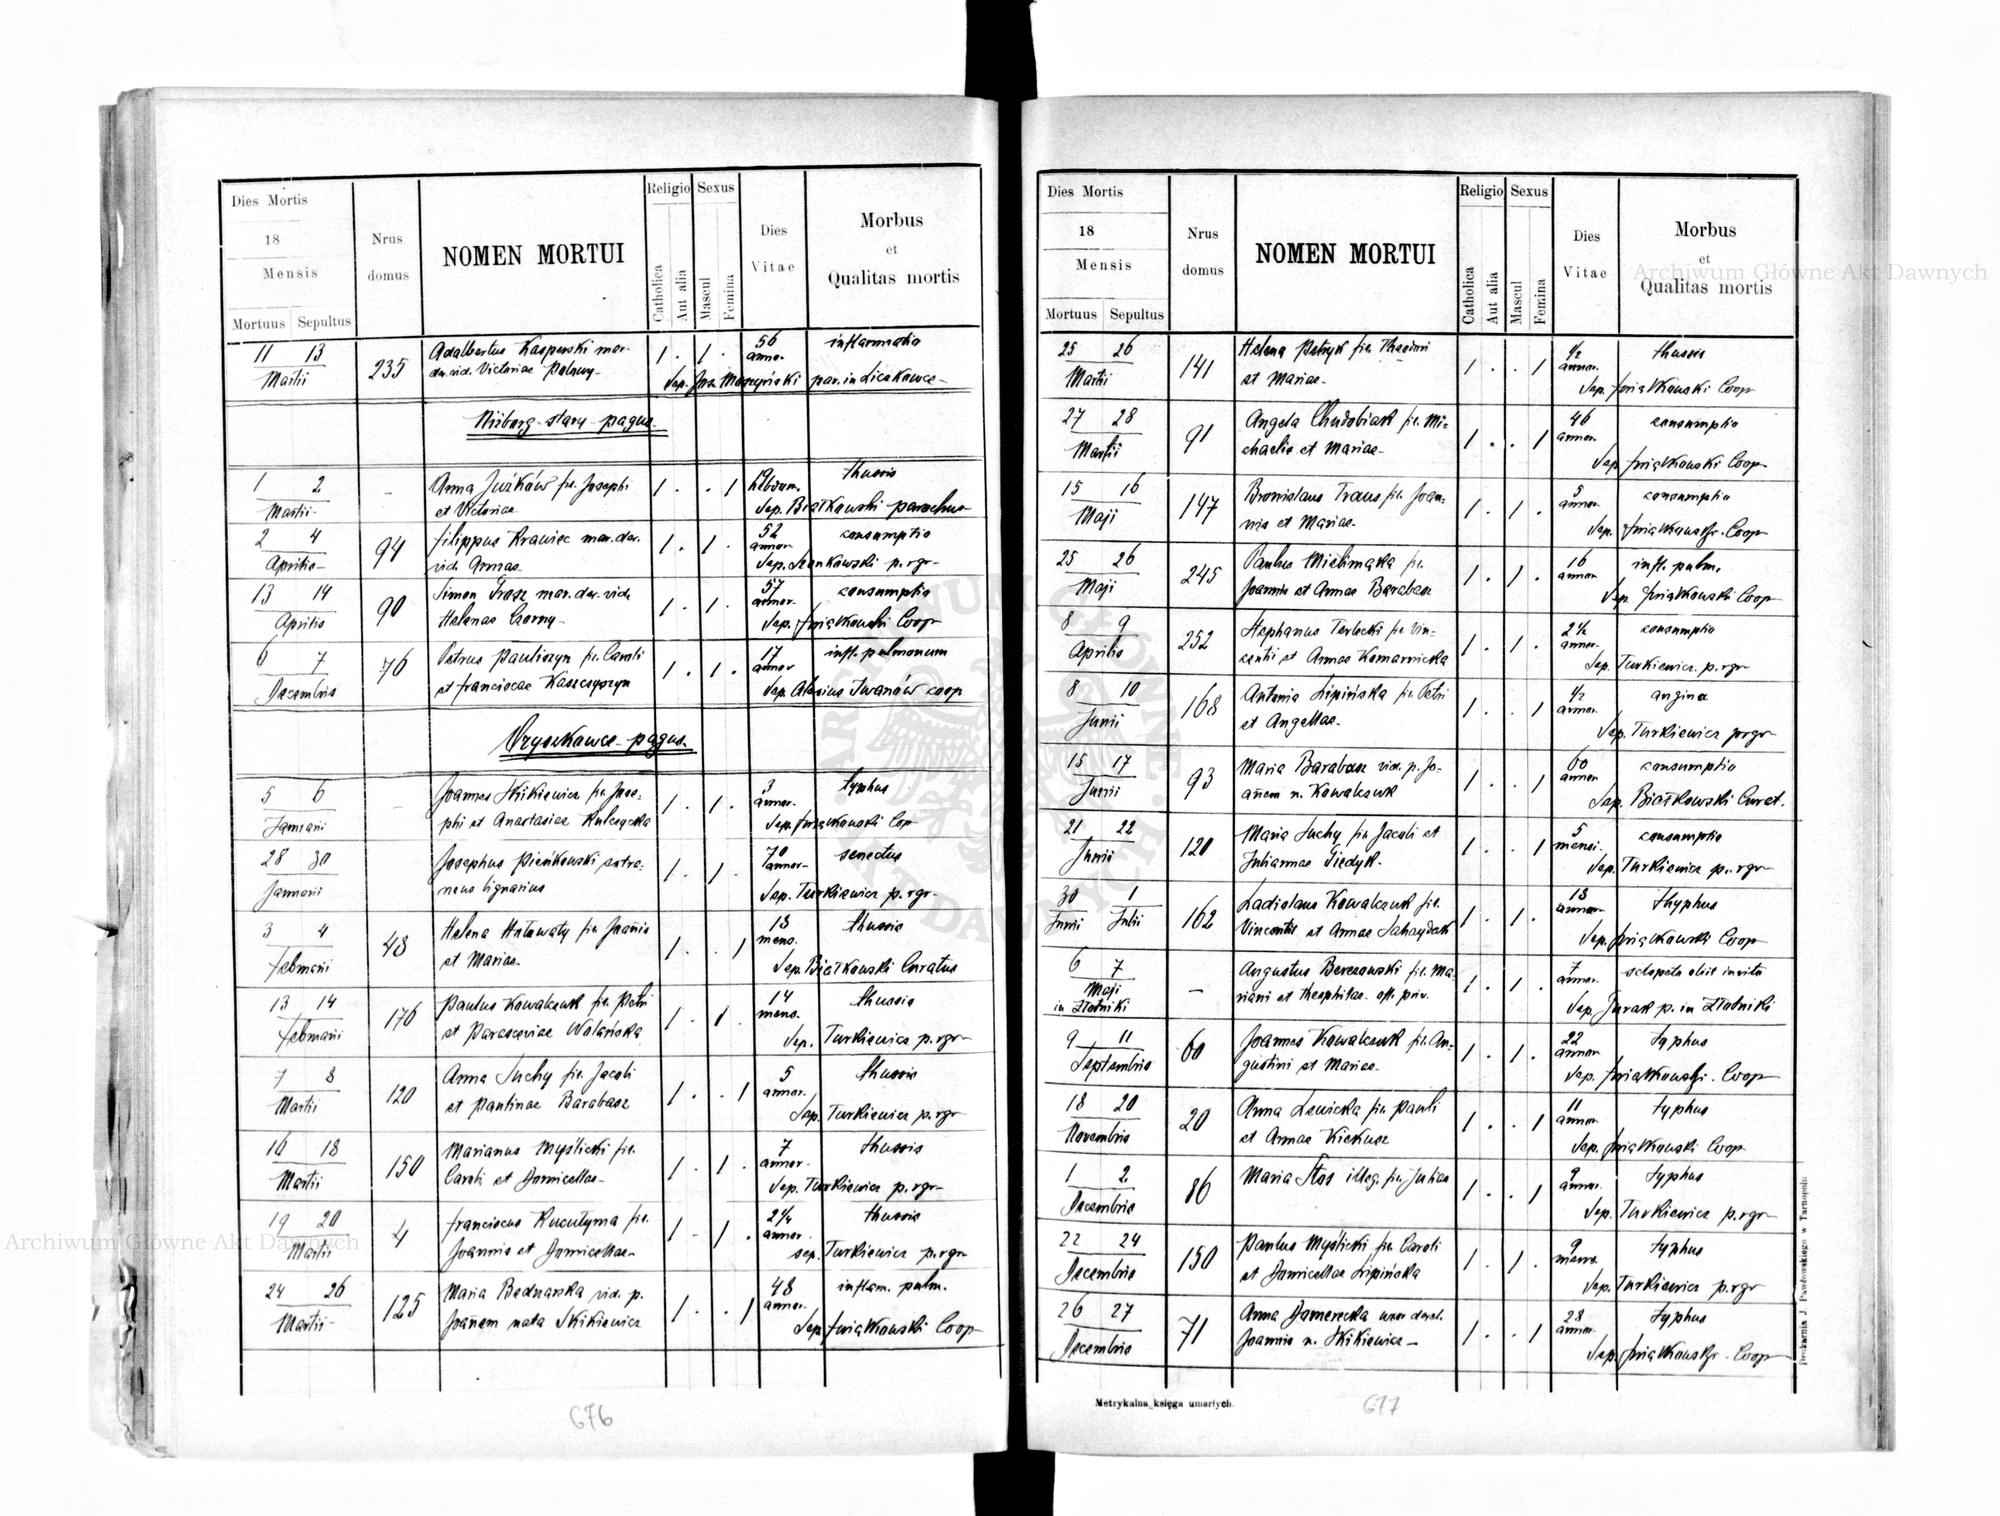 Dies Mortis
18
Mensis
Mortuus Sepultus
Nrus domus
NOMEN MORTUI
Religio
Catholica
Aut alia
Sexus
Mascul
Femina
Dies Vitae
Morbus
et
Qualitas mortis
11 13 Martii 235 Adalbertus Kasperski mar. 1 . 1 . 56 annor. inflammatio
de. vid. Victoriae
Sep. Jos. Moszyński par. in Liczkowce
Niiborg stary pagus
1 2 Martii - Anna Juźków fil. Josephi 1 . . 1 19 hebdom. thussis
et Victoriae
Sep. Białkowski parochus
2 4 Aprilis 94 Filippus Krawiec mar. der. 1 . 1 . 52 annor. consumptio
vid. Annae
p. rgr
13 14 Aprilis 90 Simon Grosz mar. der. vid. 1 . 1 . 57 annor. consumptio
Helenae Czorny
Sep. Świątkowski Coop
6 7 Decembris 76 Petrus Pauliszyn fil. Caroli 1 . 1 . 17 annor infl. pulmonum
et Franciscae Kaszczyszyn
Sep. Alexius Iwanów coop
Oryszkowce pagus
5 6 Januarii - Joannes Skikiewicz fil. Jose- 1 . 1 . 3 annor. typhus
phi et Anastasiae Kulczycka
Sep. Świątkowski Cop
28 30 Januarii Josephus Pieńkowski extra- 1 . 1 . 70 annor senectus
neus lignarius
Sep. Turkiewicz p. rgr
3 4 Februarii 48 Helena Hutowaty fil. Joañis 1 . . 1 18 mens. thussis
et Mariae
Sep. Białkowski Curatus
13 14 Februarii 176 Paulus Kowalczuk fil. Petri 1 . 1 . 14 mens. thussis
et Parasceviae Wolańska
Sep. Turkiewicz p. rgr
7 8 Martii 120 Anna Suchy fil. Jacobi 1 . . 1 5 annor. thussis
et Paulinae Barabasz
Sep. Turkiewicz p. rgr
16 18 Martii 150 Marianus Myślicki fil. 1 . 1 . 7 annor. thussis
Caroli et Domicellae
Sep. Turkiewicz p. rgr
19 20 Martii 4 Franciscus Kucutyma fil. 1 . 1 . 2 1/4 annor. thussis
Joannis et Domicellae
sep. Turkiewicz p. rgr
24 26 Martii 125 Maria Bednarska vid. p. 1 . . 1 48 annor. inflam. pulm.
Joañem nata Skikiewicz
Sep. Świątkowski Coop
676
Dies Mortis
18
Mensis
Mortuus Sepultus
Nrus domus
NOMEN MORTUI
Religio
Catholica
Aut alia
Sexus
Mascul
Femina
Dies Vitae
Morbus
et
Qualitas mortis
25 26 Martii 141 Helena Petryk fil. Theodori 1 . . 1 1/2 annor. thussis
et Mariae
Sep. Świątkowski Coop
27 28 Martii 91 Angela Chudobiak fil. Mi- 1 . . 1 46 annor. consumptio
chaelis et Mariae
Sep. Świątkowski Coop
15 16 Maji 147 Bronislaus Traus fil. Joan- 1 . 1 . 5 annor. consumptio
nis et Mariae
Sep. Świątkowski Coop
25 26 Maji 245 Paulus Mielimąka fil. 1 . 1 . 16 annor. infl. pulm.
Joannis et Annae Barabasz
Sep. Świątkowski Coop
8 9 Aprilis 252 Stephanus Terlecki fil. Vin- 1 . 1 . 2 1/2 annor. consumptio
centii et Annae Komarnicka
Sep. Turkiewicz p. rgr
8 10 Junii 168 Antonia Lipińska fil. Petri 1 . . 1 1/2 annor. angina
et Angellae
Sep. Turkiewicz p rgr
15 17 Junii 93 Maria Barabasz vid. p. Jo- 1 . . 1 60 annor. consumptio
añem n. Kowalczuk
Sep. Białkowski Curat.
21 22 Junii 120 Maria Suchy fil. Jacobi et 1 . . 1 5 mensi. consumptio
Juliannae Siedyk
Sep. Turkiewicz p. rgr
30 Junii 1 Julii 162 Ladislaus Kowalczuk fil. 1 . 1 . 18 annor. thyphus
Vincentii et Annae Sahaydak
Sep. Świątkowski Coop
6 7 Maji in Złotniki - Augustus Berezowski fil. Ma- 1 . 1 . 7 annor. sclopeto obiit invita
riani et Theophilae off. priv.
Sep. Jurak p. in Złotniki
9 11 Septembris 60 Joannes Kowalczuk fil. Au- 1 . 1 . 22 annor. typhus
gustini et Mariae
Sep. Świątkowski Coop
18 20 Novembris 20 Anna Lewicka fil. Pauli 1 . . 1 11 annor. typhus
et Annae Kickusz
Sep. Świątkowski Coop
1 2 Decembris 86 Maria Stos illeg. fil. Juliae 1 . . 1 9 annor. typhus
Sep. Turkiewicz p. rgr
22 24 Decembris 150 Paulus Myślicki fil. Caroli 1 . 1 . 9 mens. typhus
et Domicellae Lipińska
Sep. Turkiewicz p. rgr
26 27 Decembris 71 Anna Domerecka uxor derel. 1 . . 1 28 annor. typhus
Joannis n. Skikiewicz
Sep. Świątkowski Coop
Metrykalna księga umarłych.
677
Drukarnia J. Pawłowskiego w Tarnopolu
Archiwum Główne Akt Dawnych
Archiwum Główne Akt Dawnych
ARCHIWUM GŁÓWNE AKT DAWNYCH